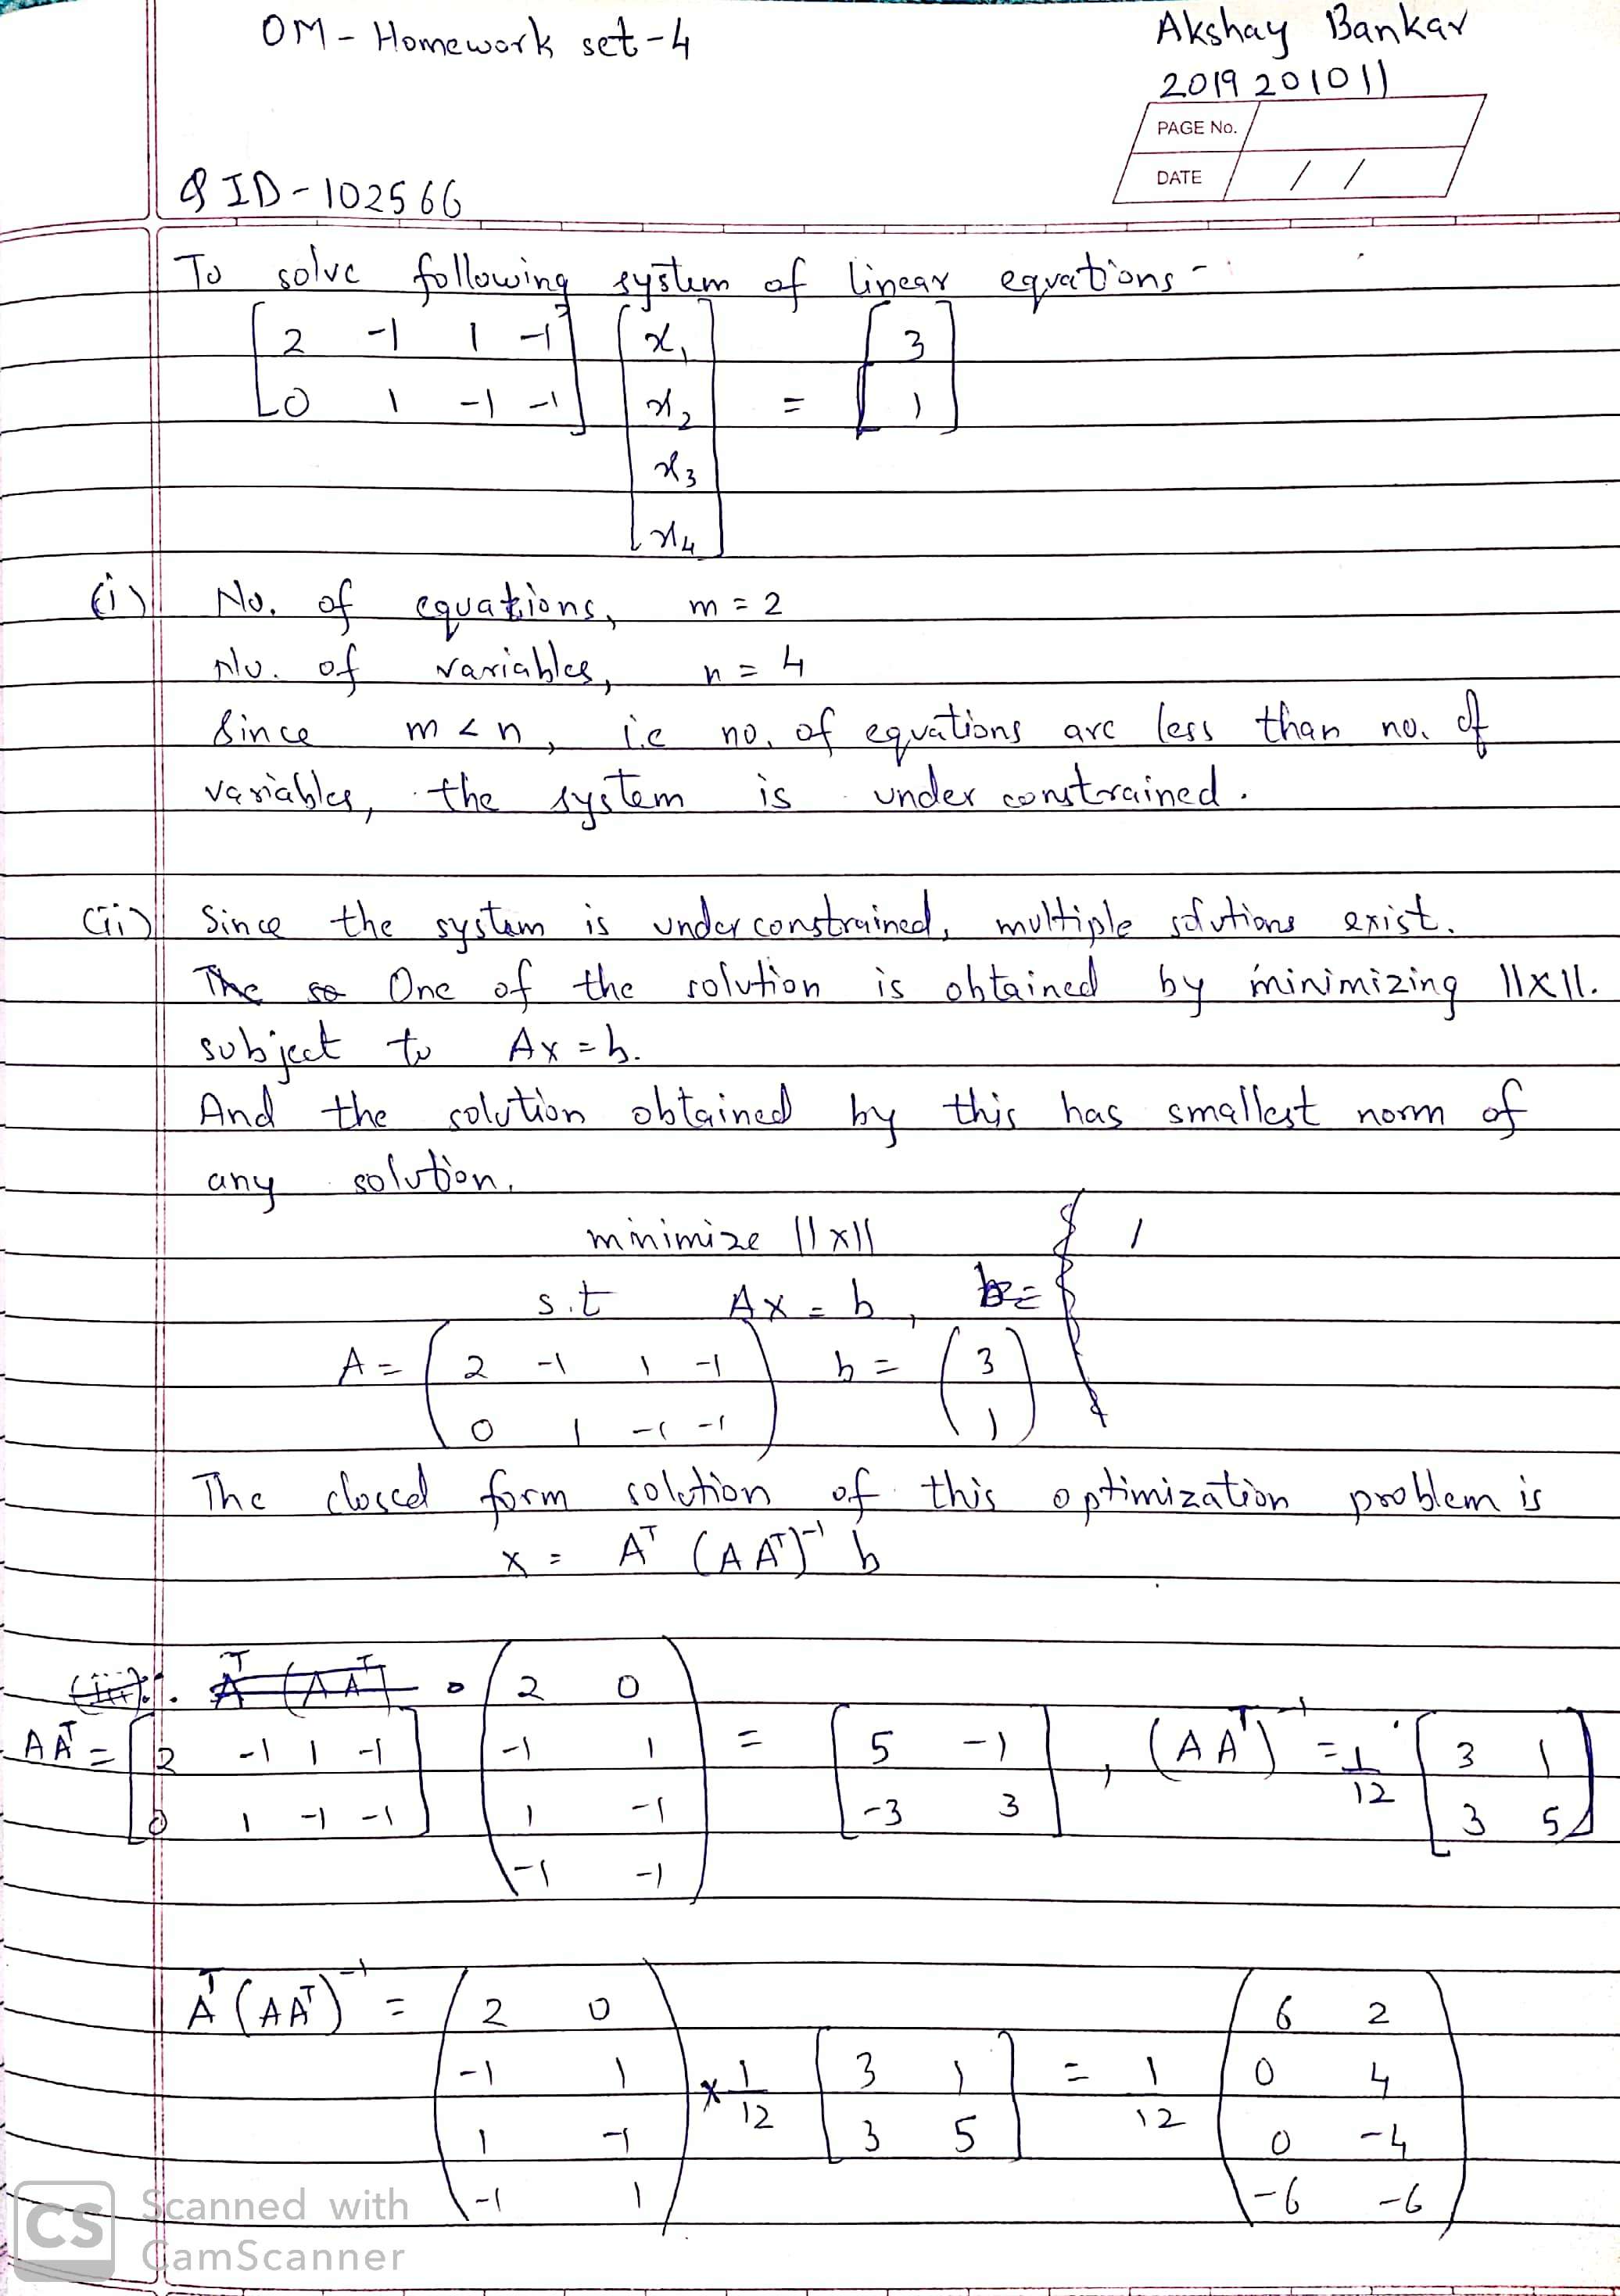 OM - Homework set-4
Akshay Bankar
2019201011
PAGE No.
DATE / /
Q ID - 102566
To solve following system of linear equations -
[ 2 -1 1 -1 ; 0 1 -1 -1 ] [ x1 ; x2 ; x3 ; x4 ] = [ 3 ; 1 ]
(i) No. of equations, m = 2
No. of variables, n = 4
Since m < n, i.e no. of equations are less than no. of
variables, the system is under constrained.
(ii) Since the system is under constrained, multiple solutions exist.
The so One of the solution is obtained by minimizing ||x||.
subject to Ax = b.
And the solution obtained by this has smallest norm of
any solution.
minimize ||x||
s.t Ax = b, b =
A = ( 2 -1 1 -1 ; 0 1 -1 -1 ) b = ( 3 ; 1 )
The closed form solution of this optimization problem is
x = A^T (AA^T)^-1 b
(iii) A^T (AA^T
AA^T = [ 2 -1 1 -1 ; 0 1 -1 -1 ] ( 2 0 ; -1 1 ; 1 -1 ; -1 -1 ) = [ 5 -1 ; -3 3 ] , (AA^T)^-1 = 1/12 [ 3 1 ; 3 5 ]
A^T (AA^T)^-1 = ( 2 0 ; -1 1 ; 1 -1 ; -1 1 ) x 1/12 [ 3 1 ; 3 5 ] = 1/12 ( 6 2 ; 0 4 ; 0 -4 ; -6 -6 )
CS Scanned with
CamScanner